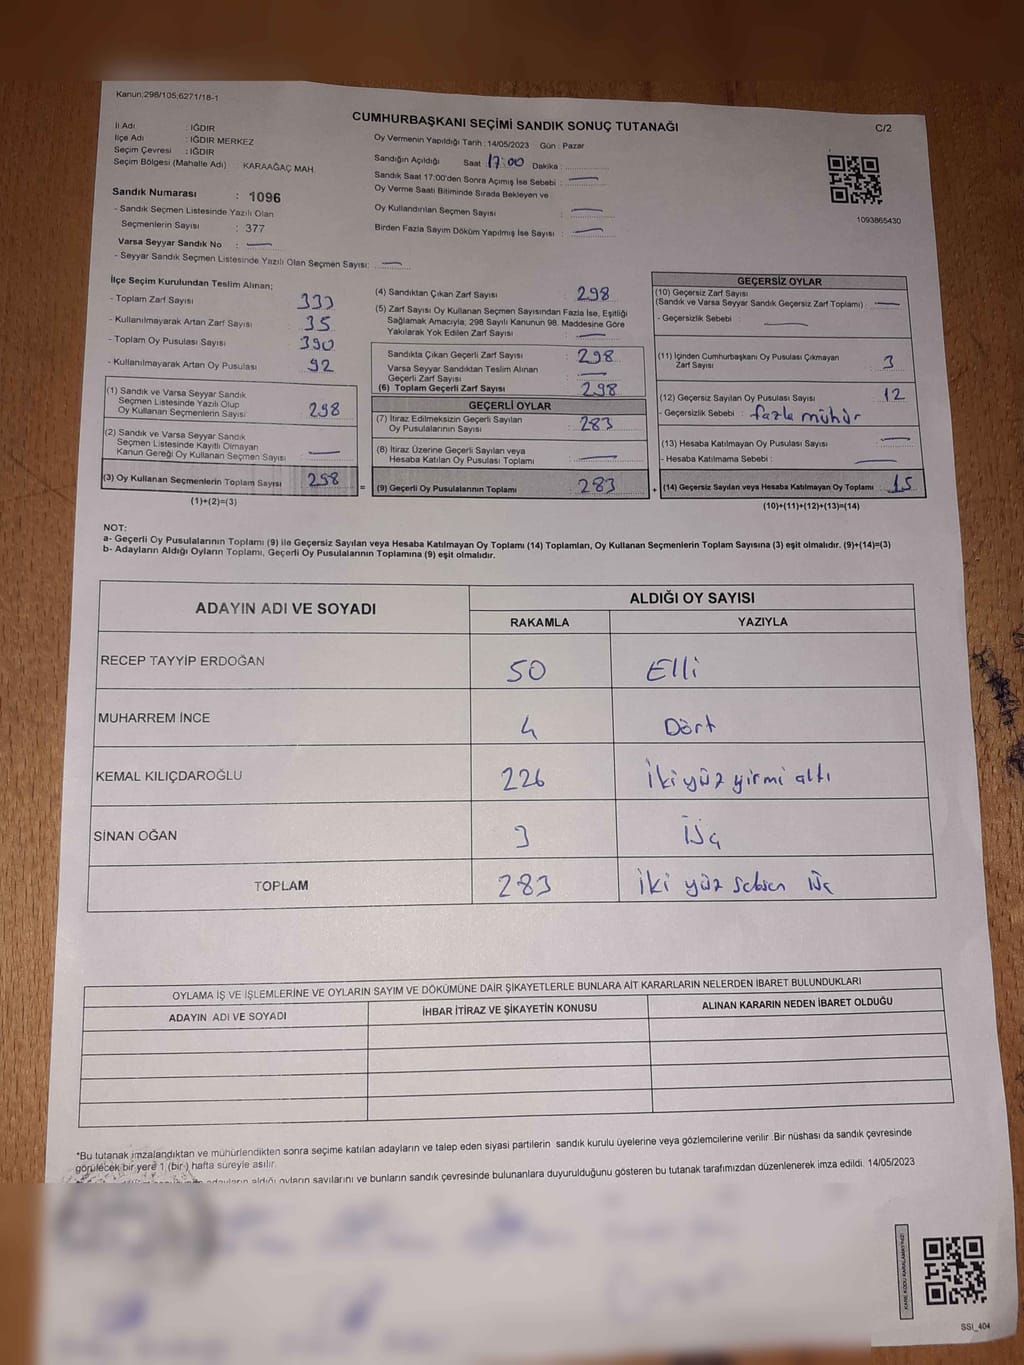 Kanun:298/105,6271/18-1
CUMHURBAŞKANI SEÇİMİ SANDIK SONUÇ TUTANAĞI
C/2
İl Adı : IĞDIR
İlçe Adı : IĞDIR MERKEZ
Seçim Çevresi : IĞDIR
Seçim Bölgesi (Mahalle Adı) KARAAĞAÇ MAH.
Sandık Numarası : 1096
- Sandık Seçmen Listesinde Yazılı Olan
Seçmenlerin Sayısı : 377
Varsa Seyyar Sandık No : —
- Seyyar Sandık Seçmen Listesinde Yazılı Olan Seçmen Sayısı: —
Oy Vermenin Yapıldığı Tarih : 14/05/2023 Gün : Pazar
Sandığın Açıldığı Saat 17:00 Dakika :
Sandık Saat 17:00'den Sonra Açımış İse Sebebi : —
Oy Verme Saati Bitiminde Sırada Bekleyen ve
Oy Kullandırılan Seçmen Sayısı : —
Birden Fazla Sayım Döküm Yapılmış İse Sayısı : —
1093865430
İlçe Seçim Kurulundan Teslim Alınan;
- Toplam Zarf Sayısı : 333
- Kullanılmayarak Artan Zarf Sayısı : 35
- Toplam Oy Pusulası Sayısı : 390
- Kullanılmayarak Artan Oy Pusulası : 92
(1) Sandık ve Varsa Seyyar Sandık
Seçmen Listesinde Yazılı Olup
Oy Kullanan Seçmenlerin Sayısı : 298
(2) Sandık ve Varsa Seyyar Sandık
Seçmen Listesinde Kayıtlı Olmayan
Kanun Gereği Oy Kullanan Seçmen Sayısı : —
(3) Oy Kullanan Seçmenlerin Toplam Sayısı : 298
(1)+(2)=(3)
(4) Sandıktan Çıkan Zarf Sayısı : 298
(5) Zarf Sayısı Oy Kullanan Seçmen Sayısından Fazla İse, Eşitliği
Sağlamak Amacıyla; 298 Sayılı Kanunun 98. Maddesine Göre
Yakılarak Yok Edilen Zarf Sayısı : —
Sandıkta Çıkan Geçerli Zarf Sayısı : 298
Varsa Seyyar Sandıktan Teslim Alınan
Geçerli Zarf Sayısı : —
(6) Toplam Geçerli Zarf Sayısı : 298
GEÇERLİ OYLAR
(7) İtiraz Edilmeksizin Geçerli Sayılan
Oy Pusulalarının Sayısı : 283
(8) İtiraz Üzerine Geçerli Sayılan veya
Hesaba Katılan Oy Pusulası Toplamı : —
= (9) Geçerli Oy Pusulalarının Toplamı : 283
GEÇERSİZ OYLAR
(10) Geçersiz Zarf Sayısı
(Sandık ve Varsa Seyyar Sandık Geçersiz Zarf Toplamı) : —
- Geçersizlik Sebebi : —
(11) İçinden Cumhurbaşkanı Oy Pusulası Çıkmayan
Zarf Sayısı : 3
(12) Geçersiz Sayılan Oy Pusulası Sayısı : 12
- Geçersizlik Sebebi : fazla mühür
(13) Hesaba Katılmayan Oy Pusulası Sayısı : —
- Hesaba Katılmama Sebebi : —
+ (14) Geçersiz Sayılan veya Hesaba Katılmayan Oy Toplamı : 15
(10)+(11)+(12)+(13)=(14)
NOT:
a- Geçerli Oy Pusulalarının Toplamı (9) ile Geçersiz Sayılan veya Hesaba Katılmayan Oy Toplamı (14) Toplamları, Oy Kullanan Seçmenlerin Toplam Sayısına (3) eşit olmalıdır. (9)+(14)=(3)
b- Adayların Aldığı Oyların Toplamı, Geçerli Oy Pusulalarının Toplamına (9) eşit olmalıdır.
ADAYIN ADI VE SOYADI
ALDIĞI OY SAYISI
RAKAMLA YAZIYLA
RECEP TAYYİP ERDOĞAN 50 Elli
MUHARREM İNCE 4 Dört
KEMAL KILIÇDAROĞLU 226 İki yüz yirmi altı
SİNAN OĞAN 3 Üç
TOPLAM 283 İki yüz seksen üç
OYLAMA İŞ VE İŞLEMLERİNE VE OYLARIN SAYIM VE DÖKÜMÜNE DAİR ŞİKAYETLERLE BUNLARA AİT KARARLARIN NELERDEN İBARET BULUNDUKLARI
ADAYIN ADI VE SOYADI İHBAR İTİRAZ VE ŞİKAYETİN KONUSU ALINAN KARARIN NEDEN İBARET OLDUĞU
*Bu tutanak imzalandıktan ve mühürlendikten sonra seçime katılan adayların ve talep eden siyasi partilerin sandık kurulu üyelerine veya gözlemcilerine verilir .Bir nüshası da sandık çevresinde
görülecek bir yere 1 (bir) hafta süreyle asılır.
adayların aldığı oyların sayılarını ve bunların sandık çevresinde bulunanlara duyurulduğunu gösteren bu tutanak tarafımızdan düzenlenerek imza edildi. 14/05/2023
SSİ_404